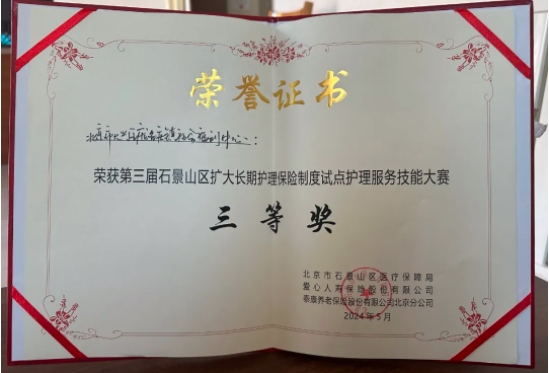 荣誉证书
荣获第三届石景山区扩大长期护理保险制度试点护理服务技能大赛
三等奖
北京市石景山区医疗保障局
爱心人寿保险股份有限公司
泰康养老保险股份有限公司北京分公司
2024年5月